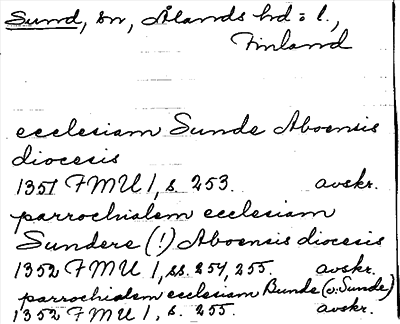 Sund, sn, Ålands hd = l.,
Finland
ecclesiam Sunde Aboensis
diocesis
1351 FMU 1, s. 253. avskr.
parrochialem ecclesiam
Sundere (!) Aboensis diocesis
1352 FMU 1, ss. 254, 255. avskr.
parrochialem ecclesiam Bunde (o: Sunde)
1352 FMU 1, s. 255. avskr.